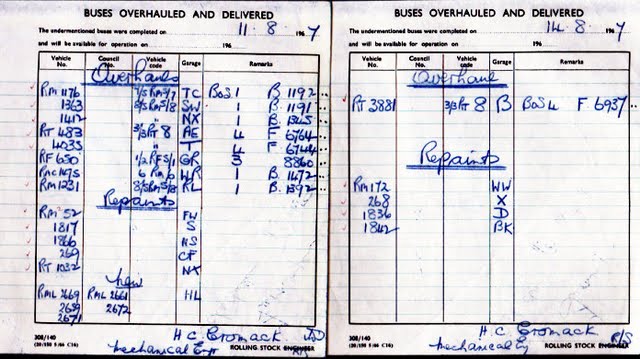 BUSES OVERHAULED AND DELIVERED
The undermentioned buses were completed on 11 . 8 . 1967
and will be available for operation on 196
Vehicle No. Council No. Vehicle code Garage Remarks
Overhauls
RM 1176 TC BoS 1 B 1192
1363 SW 1 B 1191
1412 " NX 1 B 1345
RT 1483 3/3 RT 8 AE 4 F 6764
4035 " T 4 F 6744
RF 650 1/2 RF 5/1 GR 3 8860
1475 WR 1 B 1472
RM 1231 RL 1 B 1392
Repaints
RM 52 FW
1817 S
1866 HS
269 CF
RT 1032 NX
New
RML 2669 RML 2661 HL
2659 2672
2671
H C Cromack
308/140 Mechanical Eng ROLLING STOCK ENGINEER
BUSES OVERHAULED AND DELIVERED
The undermentioned buses were completed on 14 . 8 . 1967
and will be available for operation on 196
Vehicle No. Council No. Vehicle code Garage Remarks
Overhaul
RT 3881 3/3 RT 8 B BoS 4 F 6937
Repaints
RM 172 WW
268 X
1836 D
1842 BK
H. C. Cromack
308/140 Mechanical Eng ROLLING STOCK ENGINEER